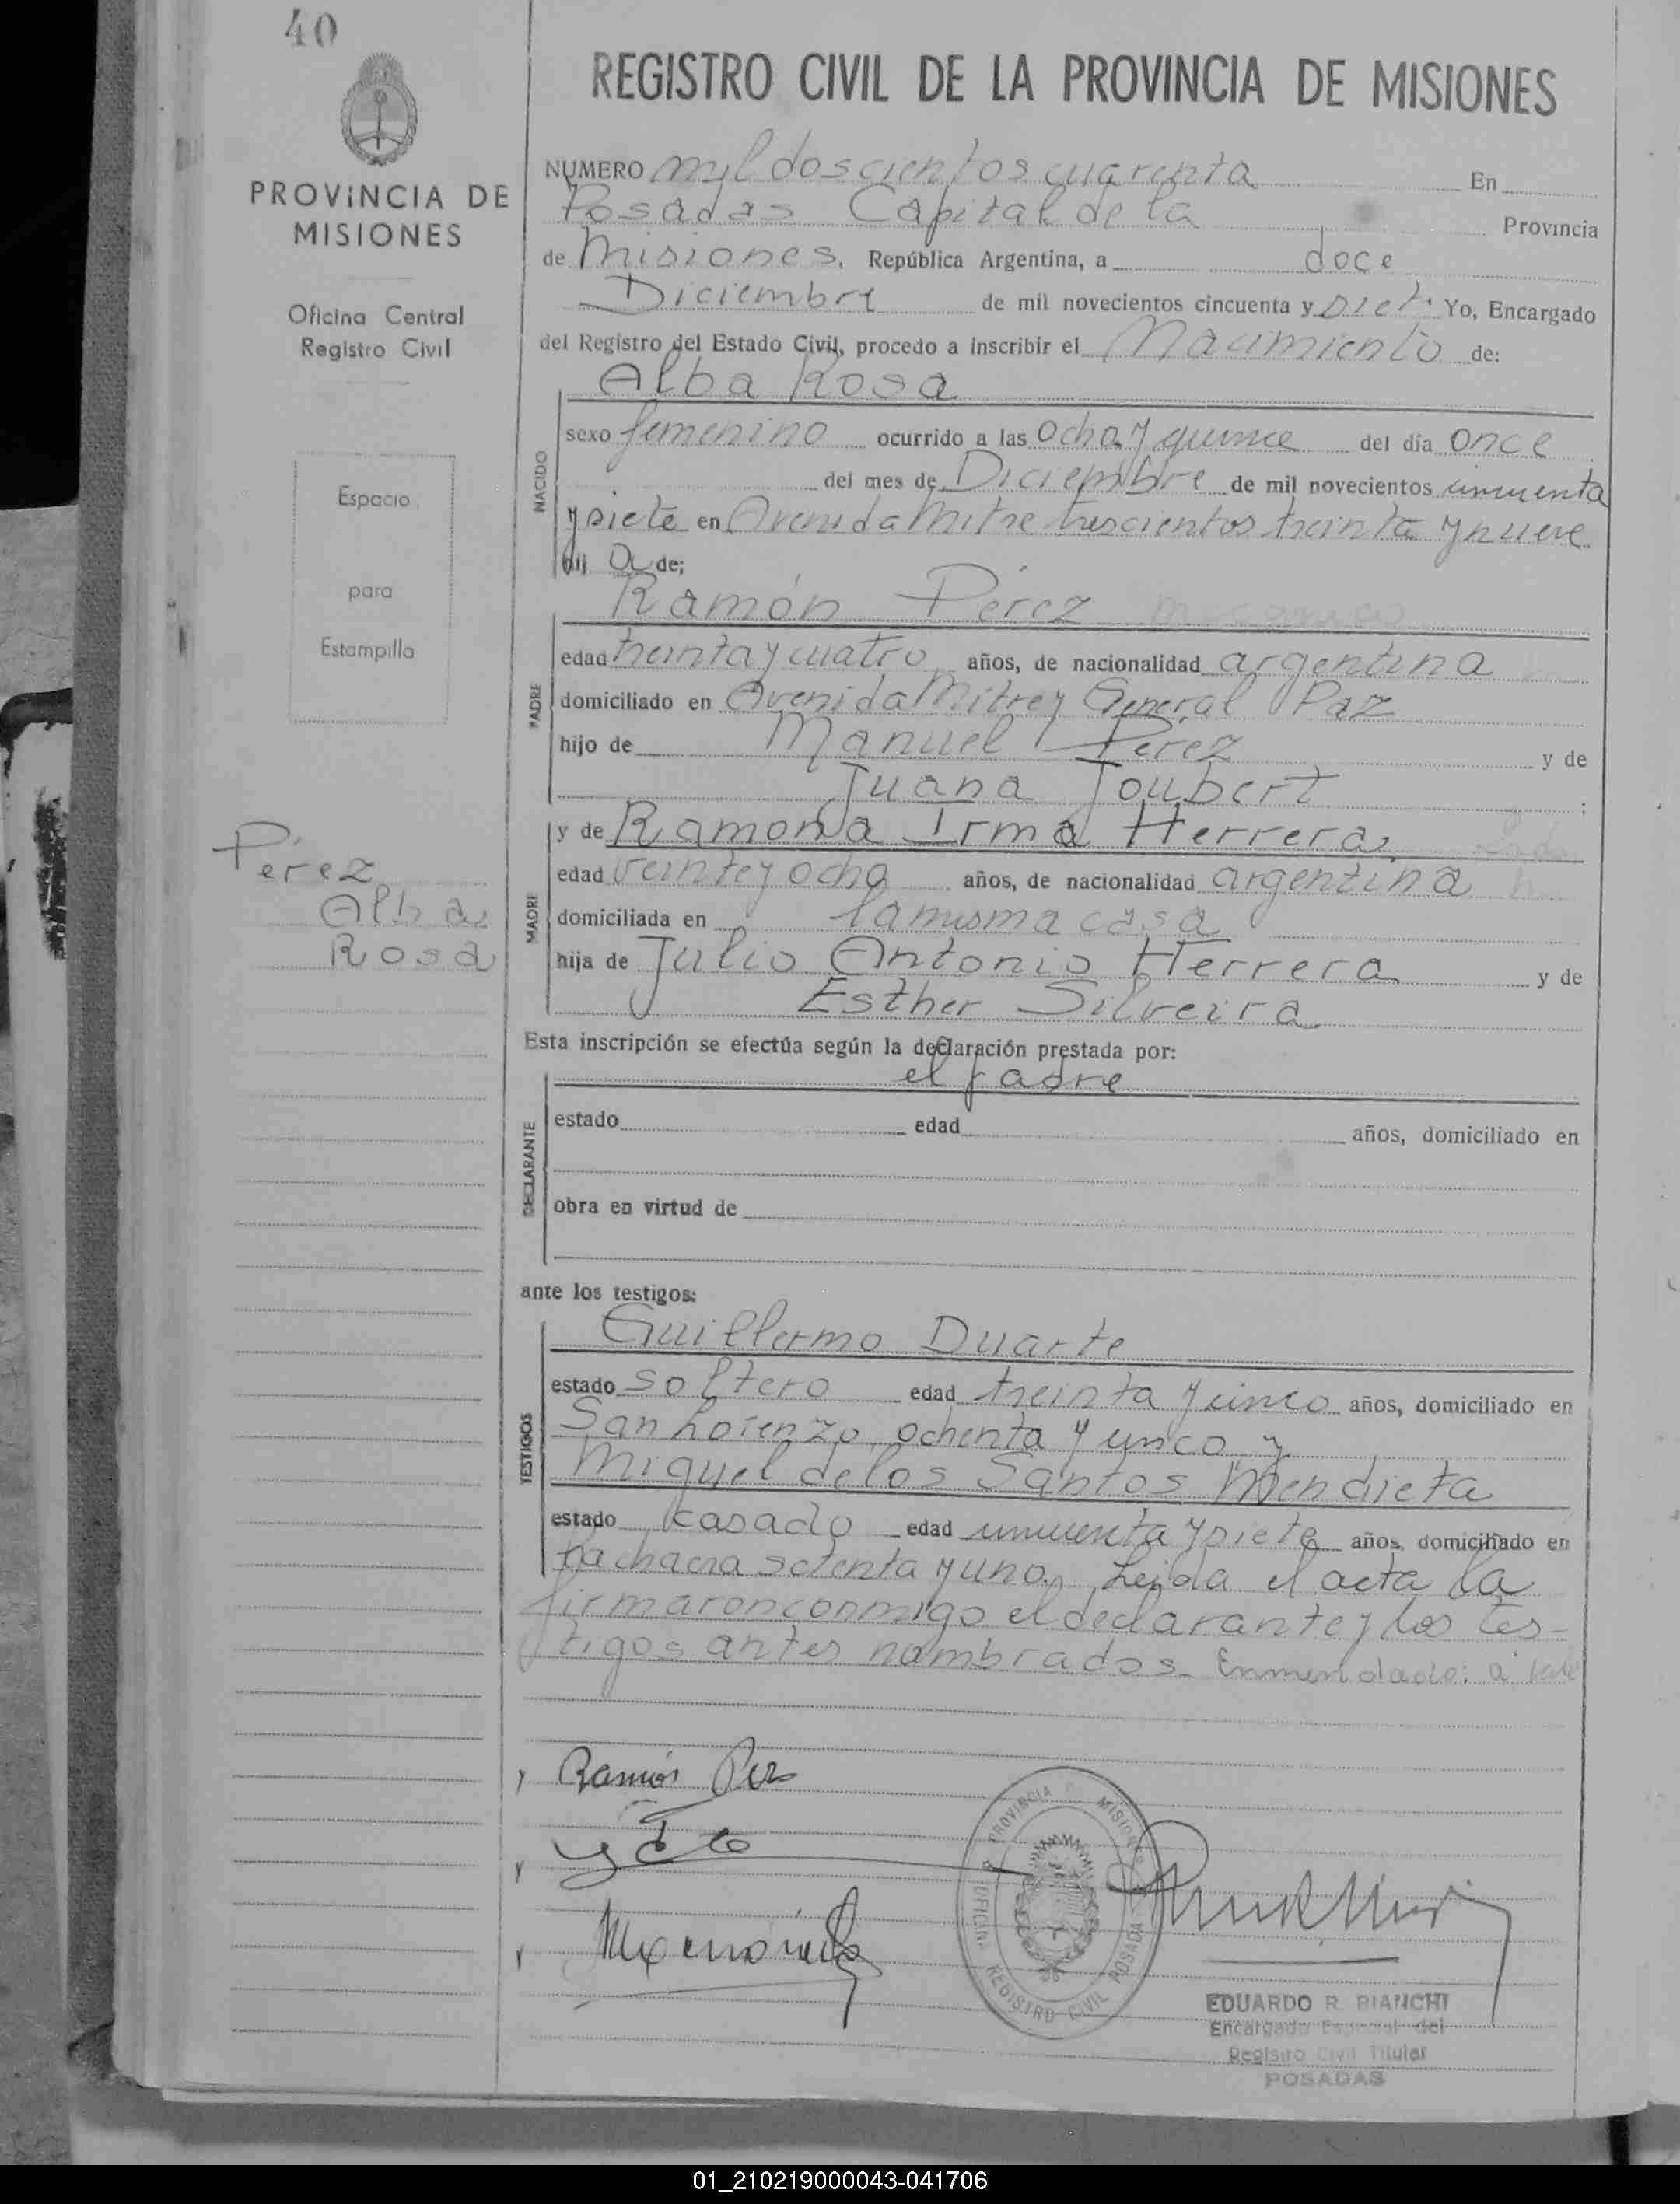 40
PROVINCIA DE
MISIONES
Oficina Central
Registro Civil
Espacio
para
Estampilla
Pérez
Alba
Rosa
REGISTRO CIVIL DE LA PROVINCIA DE MISIONES
NUMERO mil doscientos cuarenta En
Posadas Capital de la Provincia
de Misiones, República Argentina, a doce
Diciembre de mil novecientos cincuenta y siete Yo, Encargado
del Registro del Estado Civil, procedo a inscribir el Nacimiento de:
Alba Rosa
NACIDO
sexo femenino ocurrido a las ocho y quince del día once
del mes de Diciembre de mil novecientos cincuenta
y siete en Avenida Mitre trescientos treinta y nueve
hij a de;
Ramón Pérez
PADRE
edad treinta y cuatro años, de nacionalidad argentina
domiciliado en Avenida Mitre y General Paz
hijo de Manuel Pérez y de
Juana Joubert ;
MADRE
y de Ramona Irma Herrera,
edad veinte y ocho años, de nacionalidad argentina
domiciliada en la misma casa
hija de Julio Antonio Herrera y de
Esther Silveira
Esta inscripción se efectúa según la declaración prestada por:
el padre
DECLARANTE
estado edad años, domiciliado en
obra en virtud de
ante los testigos:
Guillermo Duarte
TESTIGOS
estado soltero edad treinta y cinco años, domiciliado en
San Lorenzo ochenta y cinco y
Miguel de los Santos Mendieta
estado casado edad cincuenta y siete años, domiciliado en
la chacra setenta y uno. Leída el acta la
firmaron conmigo el declarante y los tes-
tigos antes nombrados. Enmendado: a
Ramón Pérez
PROVINCIA DE MISIONES
OFICINA REGISTRO CIVIL POSADAS
EDUARDO R. BIANCHI
Encargado Especial del
Registro Civil Titular
POSADAS
01_210219000043-041706